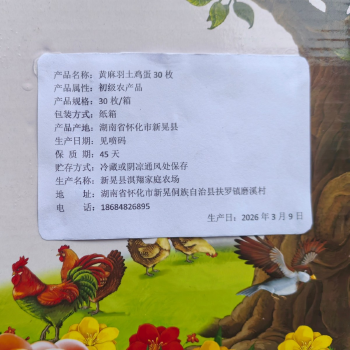 产品名称：黄麻羽土鸡蛋 30 枚
产品属性：初级农产品
产品规格：30 枚/箱
包装方式：纸箱
产品产地：湖南省怀化市新晃县
生产日期：见喷码
保 质 期：45 天
贮存方式：冷藏或阴凉通风处保存
生产名称：新晃县淇翔家庭农场
地 址：湖南省怀化市新晃侗族自治县扶罗镇磨溪村
电 话：18684826895
生产日：2026 年 3 月 9 日